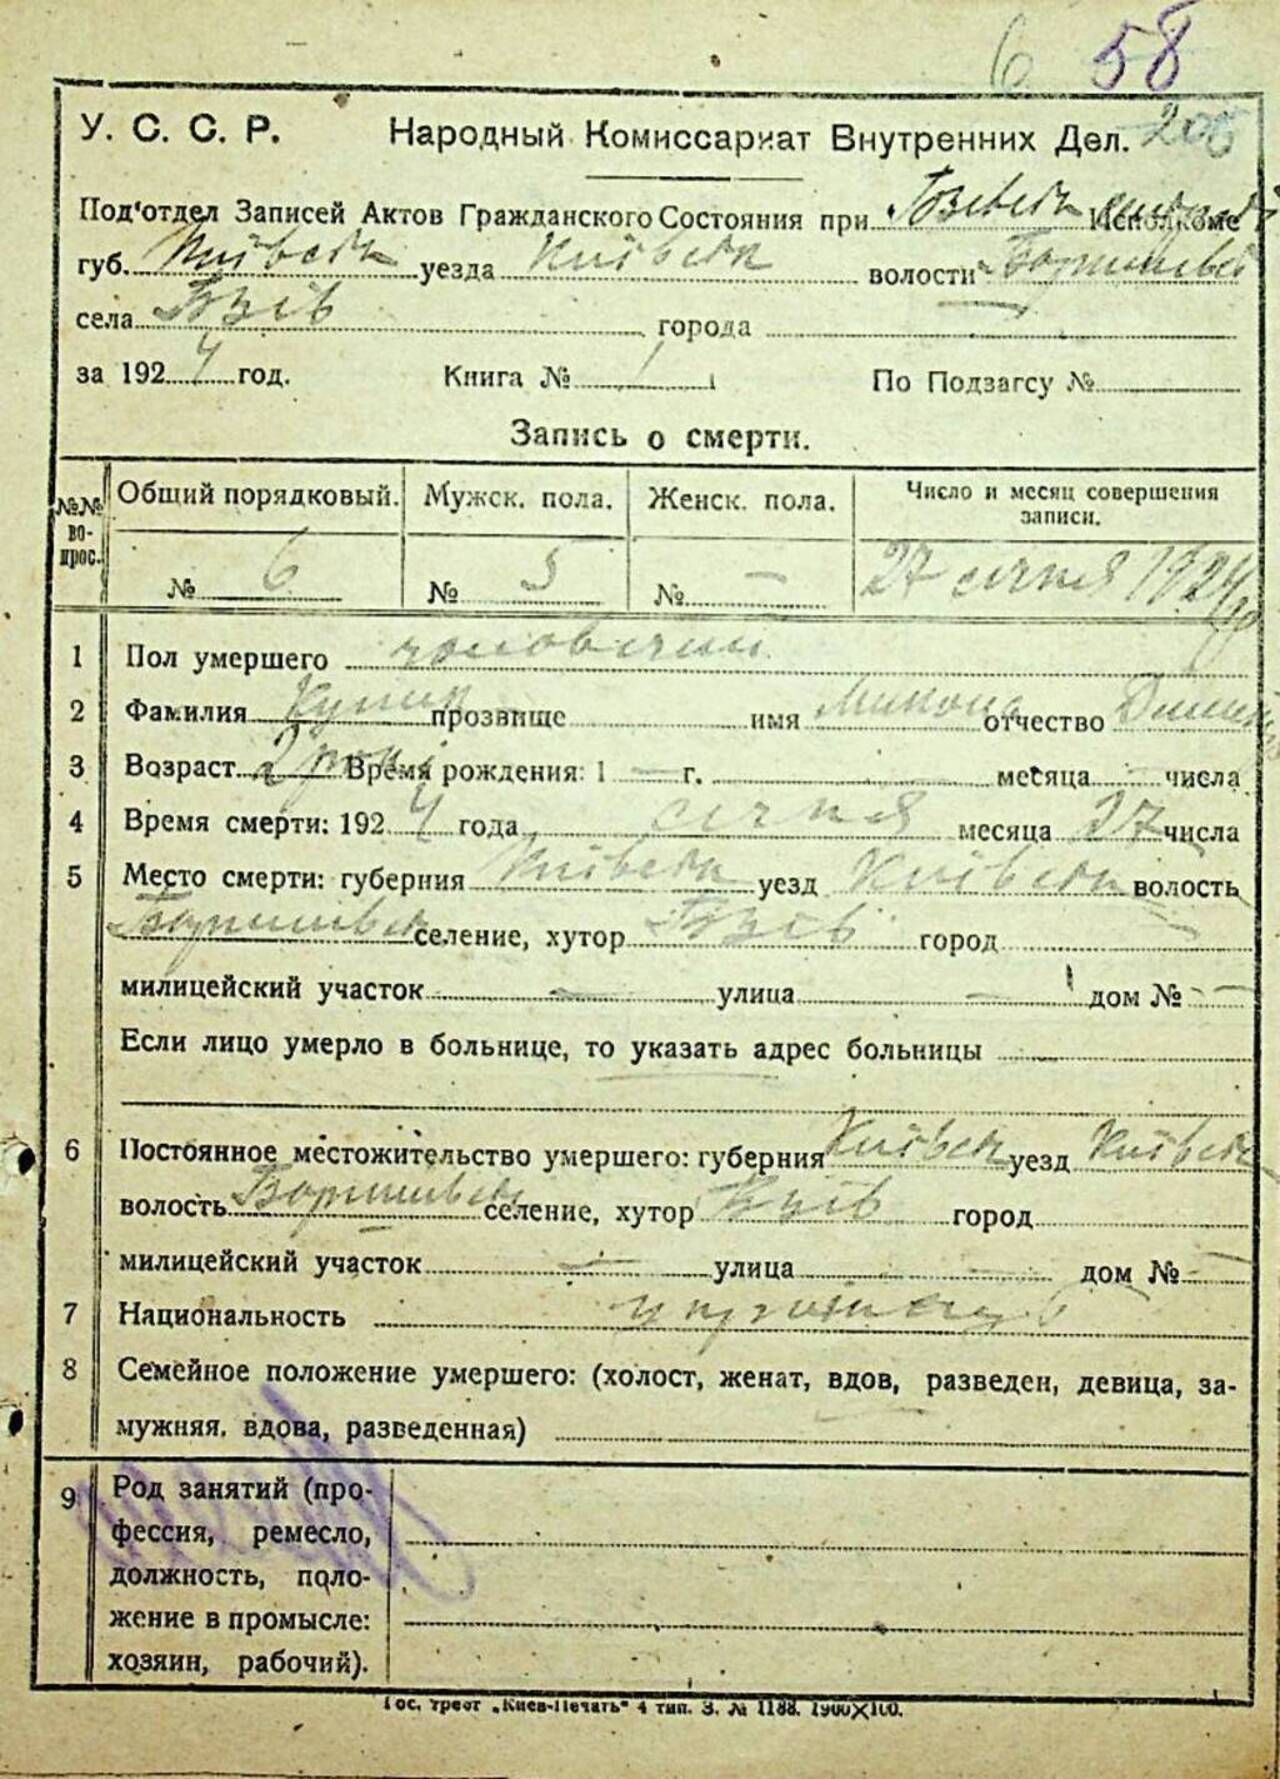 6 58
У. С. С. Р. Народный Комиссариат Внутренних Дел. 206
Под'отдел Записей Актов Гражданского Состояния при Исполкоме
губ. Київськ уезда Київськ волости
села Гзів города
за 1924 год. Книга № 1 По Подзагсу №
Запись о смерти.
№№ вопрос. Общий порядковый. Мужск. пола. Женск. пола. Число и месяц совершения записи.
№ 6 № 5 № — 27 січня 1924
1 Пол умершего чоловічий
2 Фамилия прозвище имя отчество
3 Возраст 2 роки Время рождения: 1 — г. месяца — числа
4 Время смерти: 1924 года січня месяца 27 числа
5 Место смерти: губерния Київськ уезд Київськ волость
селение, хутор Гзів город
милицейский участок — улица — дом № —
Если лицо умерло в больнице, то указать адрес больницы
6 Постоянное местожительство умершего: губерния Київськ уезд Київськ
волость селение, хутор Гзів город
милицейский участок — улица — дом № —
7 Национальность
8 Семейное положение умершего: (холост, женат, вдов, разведен, девица, за-
мужняя, вдова, разведенная)
9 Род занятий (про-
фессия, ремесло,
должность, поло-
жение в промысле:
хозяин, рабочий).
Гос. трест „Киев-Печать“ 4 тип. З. № 1188. 1900X100.